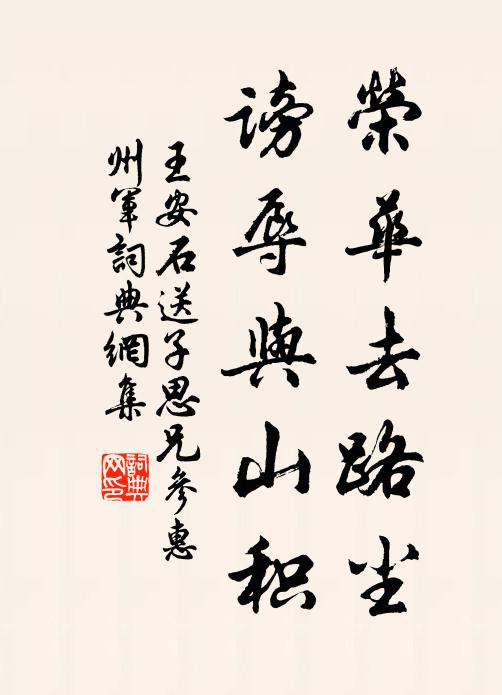 榮華去路尘
謗辱與山积
王安石送子思兄參惠
州軍詞典網集
詞典
网印